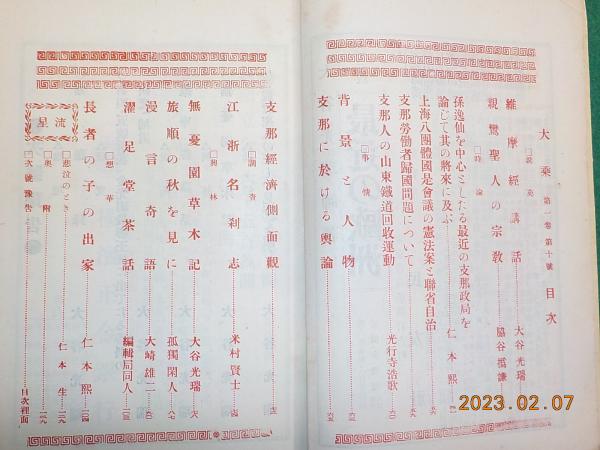 大乘 第一卷 第十號 目次
維摩經講話 大谷光瑞
親鸞聖人の宗教 脇谷撝謙
□時論
孫逸仙を中心としたる最近の支那政局を
論じて其の將來に及ぶ 仁本熙
上海八團體國是會議の憲法案と聯省自治
支那勞働者歸國問題について
支那人の山東鐵道回收運動 光行寺浩歌
□事情
背景と人物
支那に於ける輿論
支那經濟側面觀
□調査
江浙名刹志 米村賢士
無憂園草木記 大谷光瑞
旅順の秋を見に 孤獨閑人
漫言奇語 大崎雄二
濯足堂茶話 編輯局同人
長者の子の出家 仁本熙
流星
□悲泣のとき 仁本生
□次號豫告 目次裡面
2023.02.07